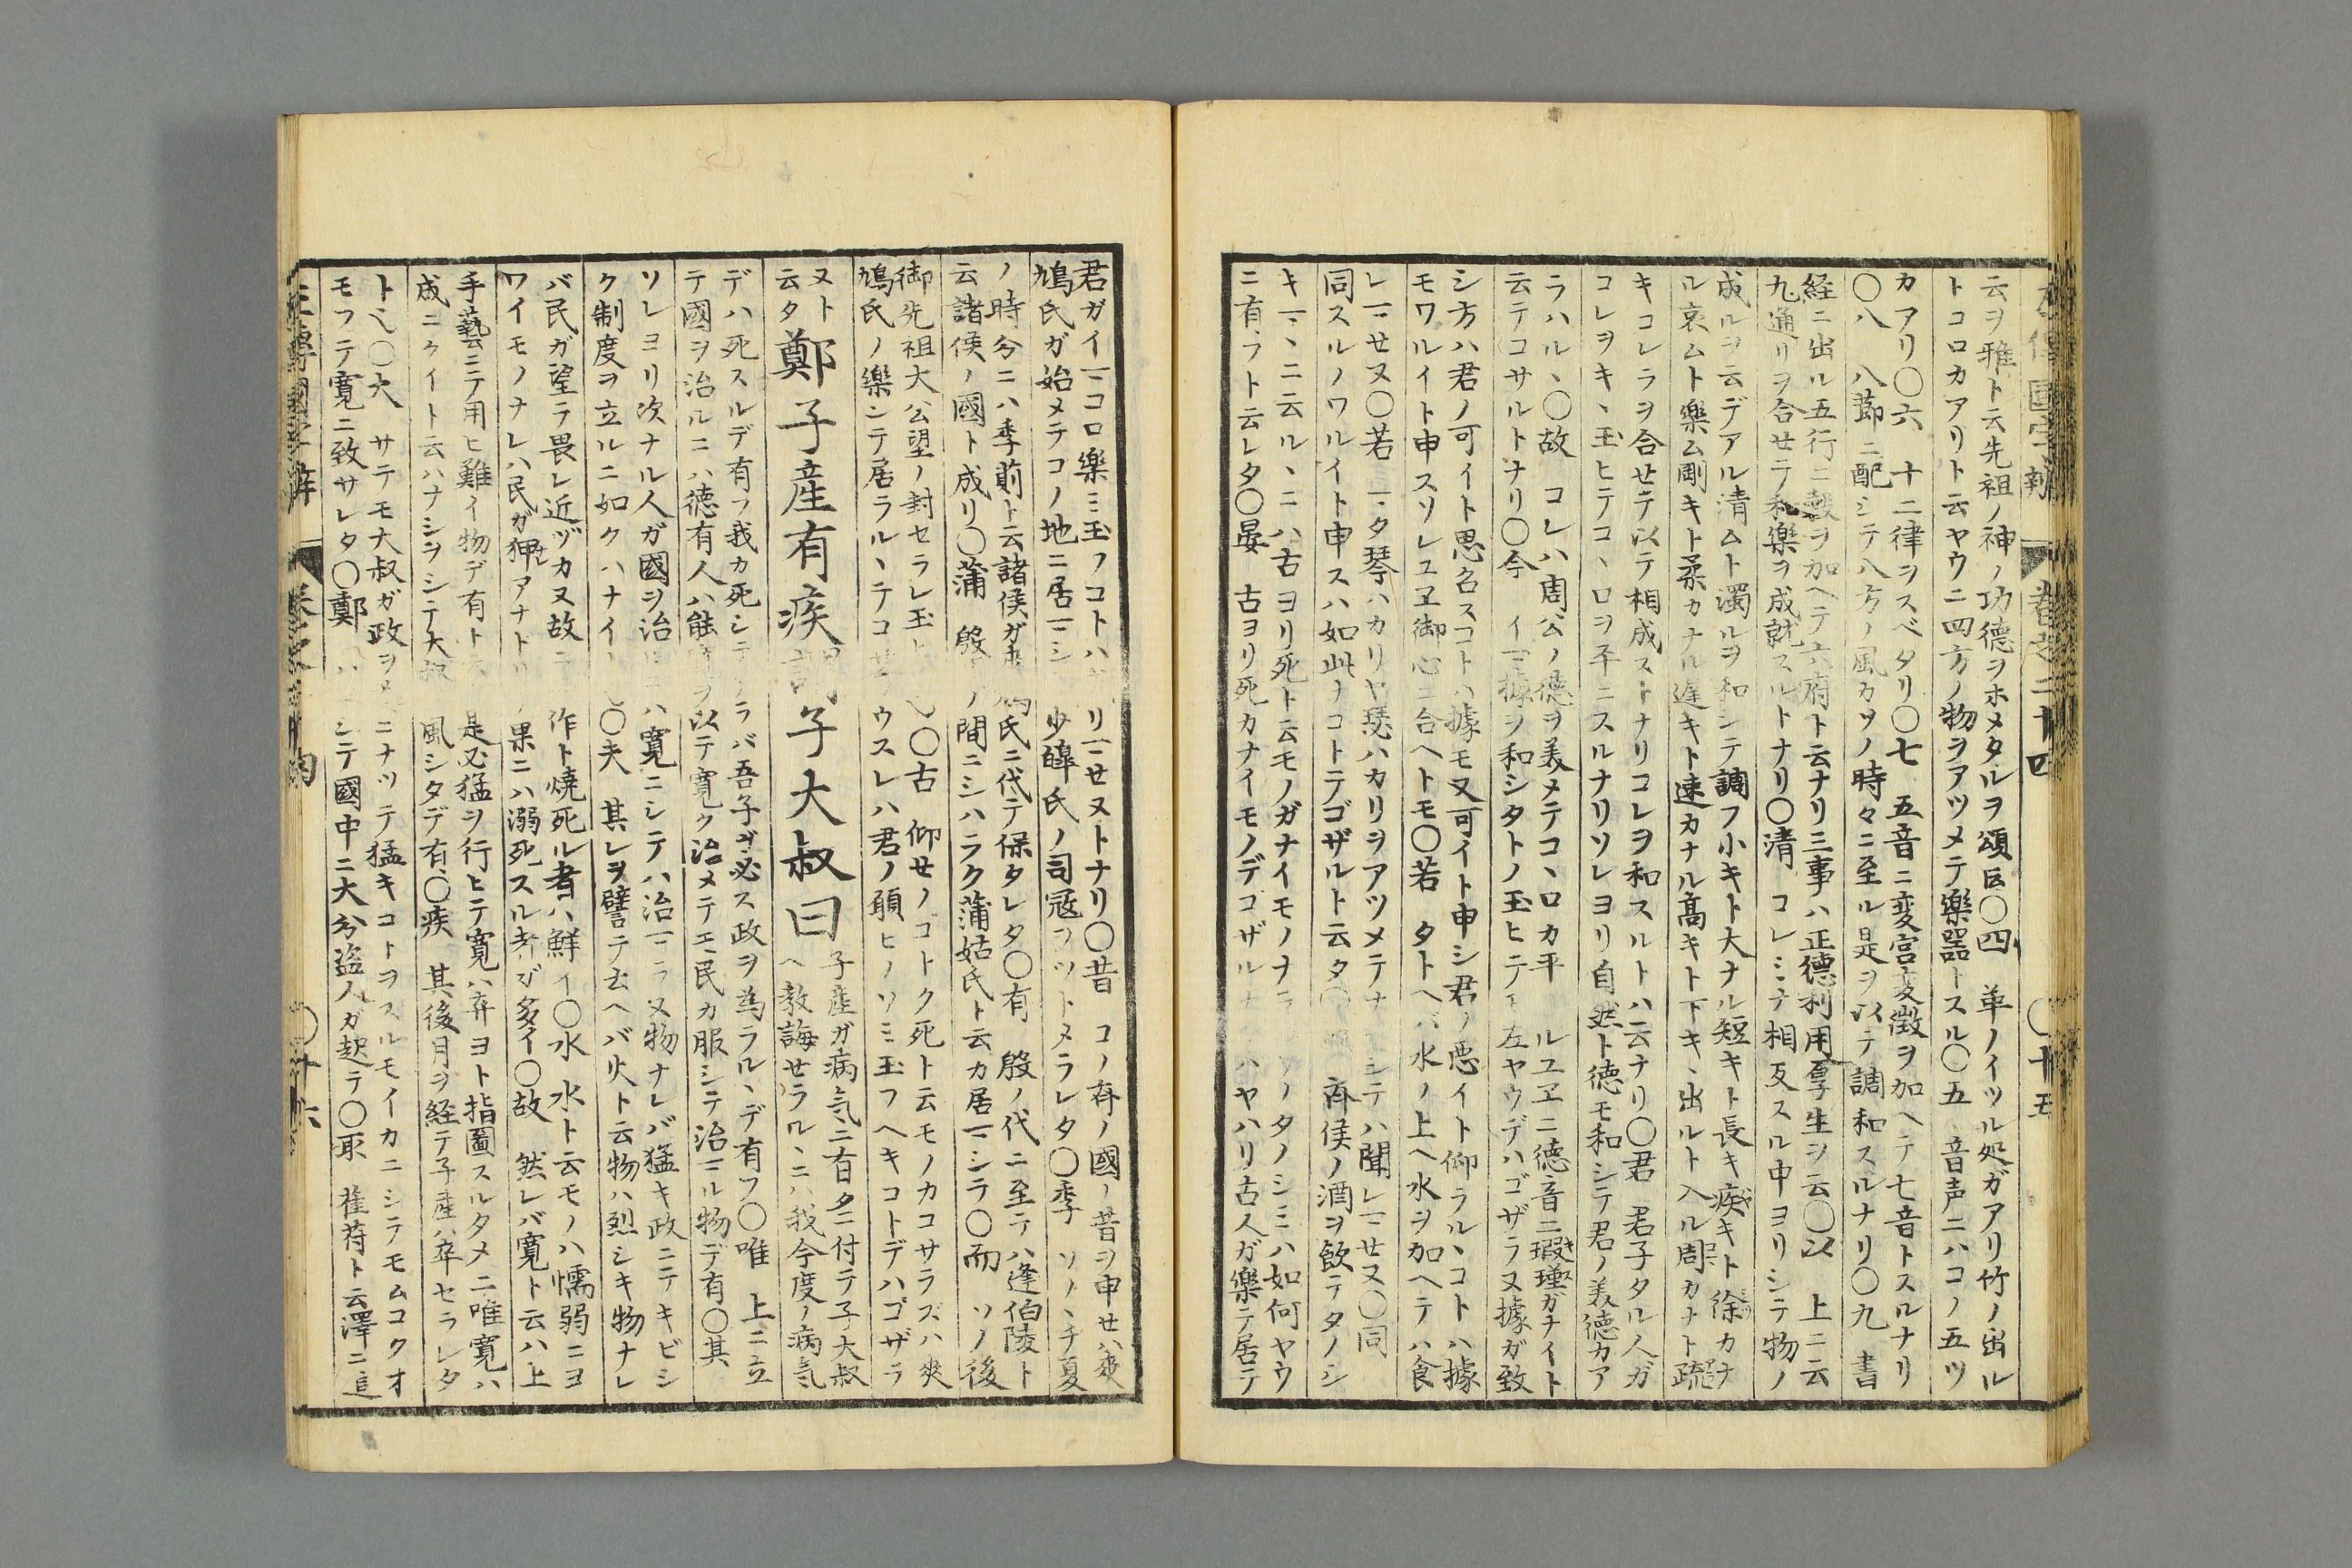 云ヲ雅ト云先祖ノ神ノ功德ヲホメタルヲ頌ト云〇四 革ノイツル処ガアリ竹ノ出ル
トコロカアリト云ヤウニ四方ノ物ヲアツメテ樂器トスル〇五 音声ニハコノ五ツ
カアリ〇六 十二律ヲスベタリ〇七 五音ニ変宮変徴ヲ加ヘテ七音トスルナリ
〇八 八節ニ配シテ八方ノ風カソノ時々ニ至ル是ヲ以テ調和スルナリ〇九 書
経ニ出ル五行ニ穀ヲ加ヘテ六府ト云ナリ三事ハ正德利用厚生ヲ云〇以 上ニ云
九通リヲ合セテ和樂ヲ成就スルトナリ〇清 コレミナ相反スル中ヨリシテ物ノ
成ルヲ云デアル清ムト濁ルヲ和シテ調フ小キト大ナル短キト長キ疾キト徐カナ
ル哀ムト樂ム剛キト柔カナル遲キト速カナル高キト下キ、出ルト入ル周カナト疏
キコレラヲ合セテ以テ相成ストナリコレヲ和スルトハ云ナリ〇君 君子タル人ガ
コレヲキ、玉ヒテコ、ロヲ平ニスルナリソレヨリ自然ト德モ和シテ君ノ美德カア
ラハル、〇故 コレハ周公ノ德ヲ美メテコ、ロカ平 ルユヱニ德音ニ瑕瑾ガナイト
云テコサルトナリ〇今 イマ據ヲ和シタトノ玉ヒテモ左ヤウデハゴザラヌ據ガ致
シ方ハ君ノ可イト思召スコトハ據モ又可イト申シ君ノ悪イト仰ラル、コトハ據
モワルイト申スソレユヱ御心ニ合ヘトモ〇若 タトヘバ水ノ上ヘ水ヲ加ヘテハ食
レマセヌ〇若 マタ琴ハカリヤ瑟ハカリヲアツメテナ シテハ聞レマセヌ〇同
同スルノワルイト申スハ如此ナコトテゴザルト云タ 齊侯ノ酒ヲ飲テタノシ
キマ、ニ云ル、ニハ古ヨリ死ト云モノガナイモノナラ ノタノシミハ如何ヤウ
ニ有フト云レタ〇晏 古ヨリ死カナイモノデゴザルナ ハヤハリ古人ガ樂テ居テ
卷之二十四
〇十五
君ガイマコロ樂ミ玉フコトハ リマセヌトナリ〇昔 コノ齊ノ國ノ昔ヲ申セハ爽
鳩氏ガ始メテコノ地ニ居マシ 少皡氏ノ司寇ヲツトメラレタ〇季 ソノ、チ夏
ノ時分ニハ季萴ト云諸侯ガ爽鳩氏ニ代テ保タレタ〇有 殷ノ代ニ至テハ逢伯陵ト
云諸侯ノ國ト成リ〇蒲 殷 ノ間ニシハラク蒲姑氏ト云カ居マシテ〇而 ソノ後
御先祖大公望ノ封セラレ玉ト 〇古 仰セノゴトク死ト云モノカコサラズハ爽
鳩氏ノ樂シテ居ラル、テコサ ウスレハ君ノ願ヒノソミ玉フヘキコトデハゴザラ
ヌト
云タ
鄭子產有疾謂子大叔曰
子產ガ病気ニ有タニ付テ子大叔
ヘ教誨セラル、ニハ我今度ノ病気
デハ死スルデ有フ我カ死シテ ラバ吾子ガ必ス政ヲ為ラル、デ有フ〇唯 上ニ立
テ國ヲ治ルニハ德有人ハ能 ヲ以テ寬ク治メテエ民カ服シテ治マル物デ有〇其
ソレヨリ次ナル人ガ國ヲ治 ハ寬ニシテハ治マラヌ物ナレバ猛キ政ニテキビシ
ク制度ヲ立ルニ如クハナイ 〇夫 其レヲ譬テ云ヘバ火ト云物ハ烈シキ物ナレ
バ民ガ望テ畏レ近ヅカヌ故ニ 作ト燒死ル者ハ鮮イ〇水 水ト云モノハ懦弱ニヨ
ワイモノナレハ民ガ狎アナトリ 果ニハ溺死スル者ガ多イ〇故 然レバ寬ト云ハ上
手藝ニテ用ヒ難イ物デ有ト 是必猛ヲ行ヒテ寬ハ弃ヨト指圖スルタメニ唯寬ハ
成ニクイト云ハナシヲシテ大叔 風シタデ有〇疾 其後月ヲ経テ子產ハ卒セラレタ
ト〇大 サテモ大叔ガ政ヲ ニナツテ猛キコトヲスルモイカニシテモムコクオ
モフテ寬ニ致サレタ〇鄭 ハ シテ國中ニ大分盜人ガ起テ〇取 萑苻ト云澤ニ
左傳國字辯
〇十六